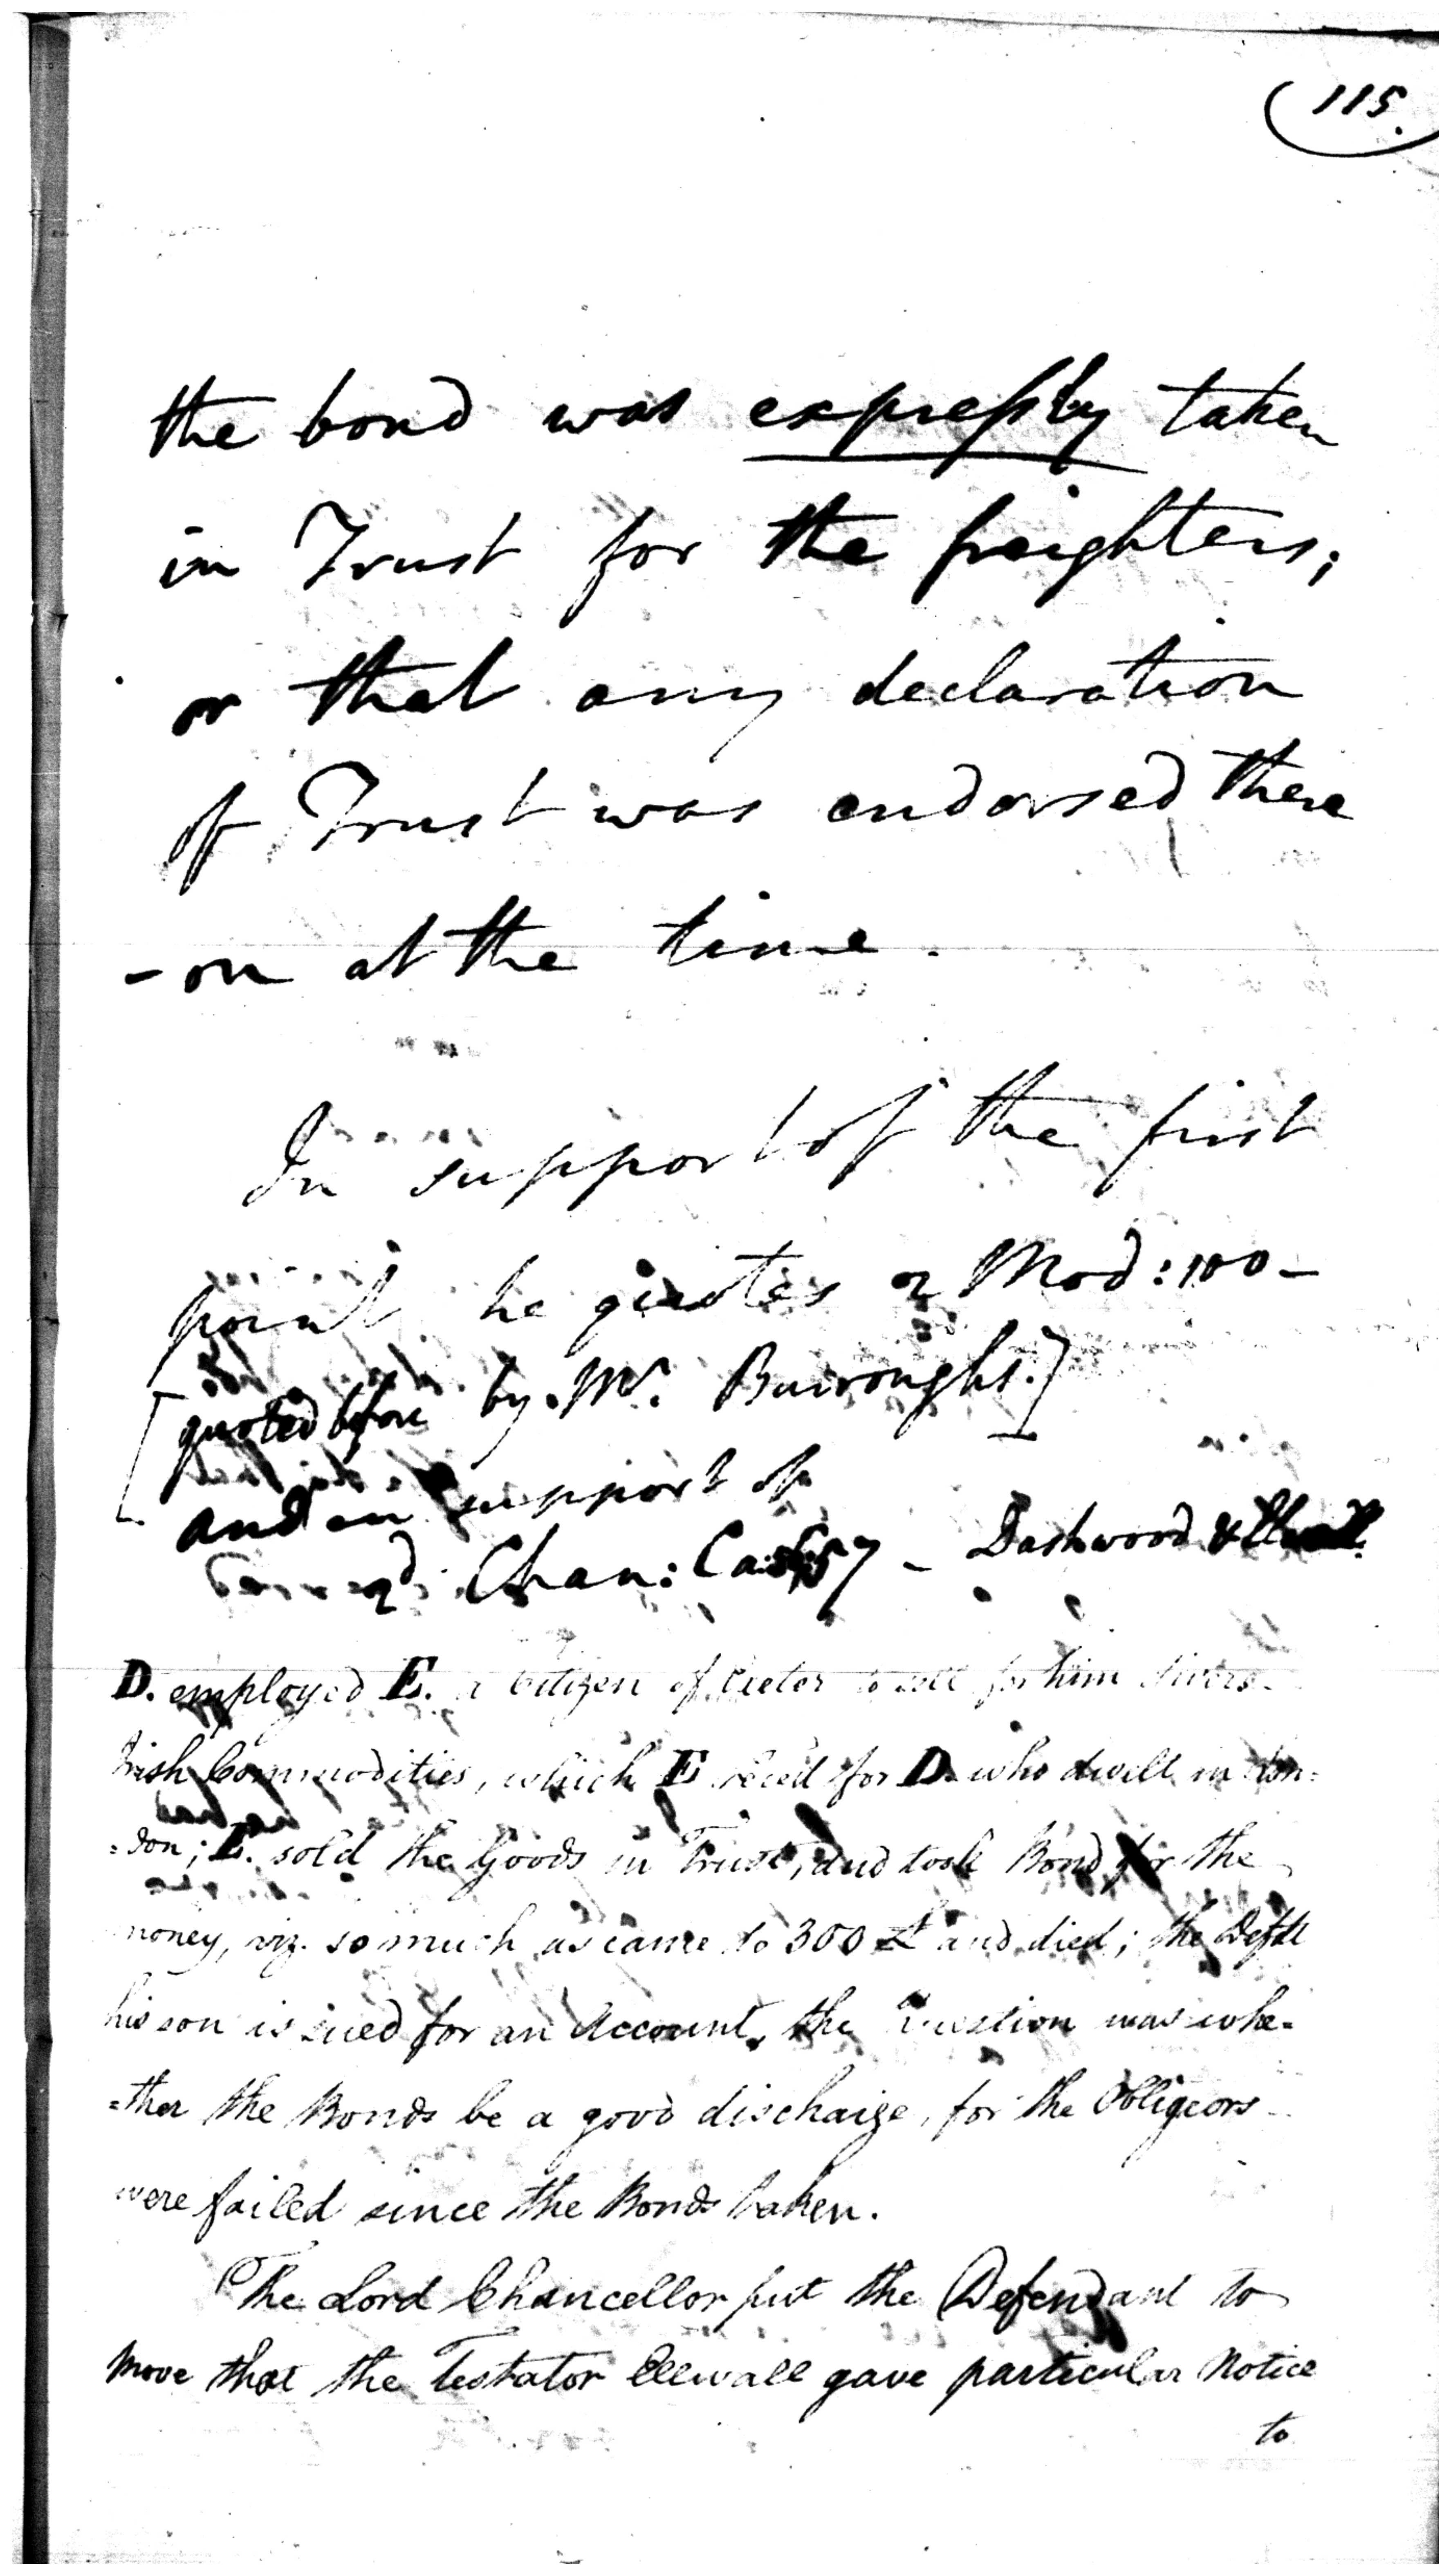 115.
the bond was expressly taken
in Trust for the freighters;
or that any declaration
of Trust was endorsed there
-on at the time.
In support of the first
point he quotes 2 Mod: 100-
[quoted before by Mr. Burroughs.]
and in support of
2d. Chan: Ca: 57 - Dashwood &
D. employed E. a Citizen of Exeter to sell for him divers
Irish Commodities, which E. recd for D. who dwelt in Lon:
=don; E. sold the Goods in Trust, and took Bond for the
money, viz. so much as came to 300£ and died; the Deft
his son is sued for an Account, the Question was whe-
=ther the Bonds be a good discharge, for the Obligeors
were failed since the Bonds taken.
The Lord Chancellor put the Defendant to
prove that the Testator Ellwall gave particular Notice
to